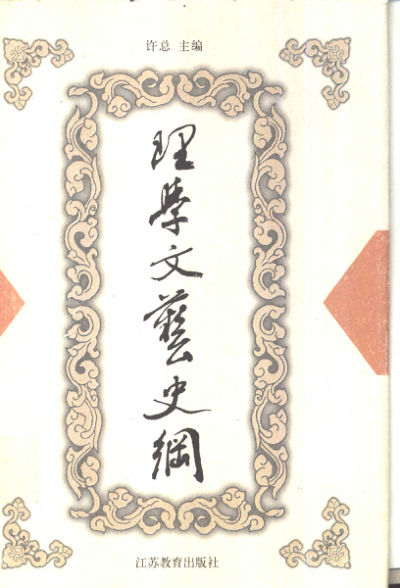 许总 主编
理學文藝史綱
江苏教育出版社